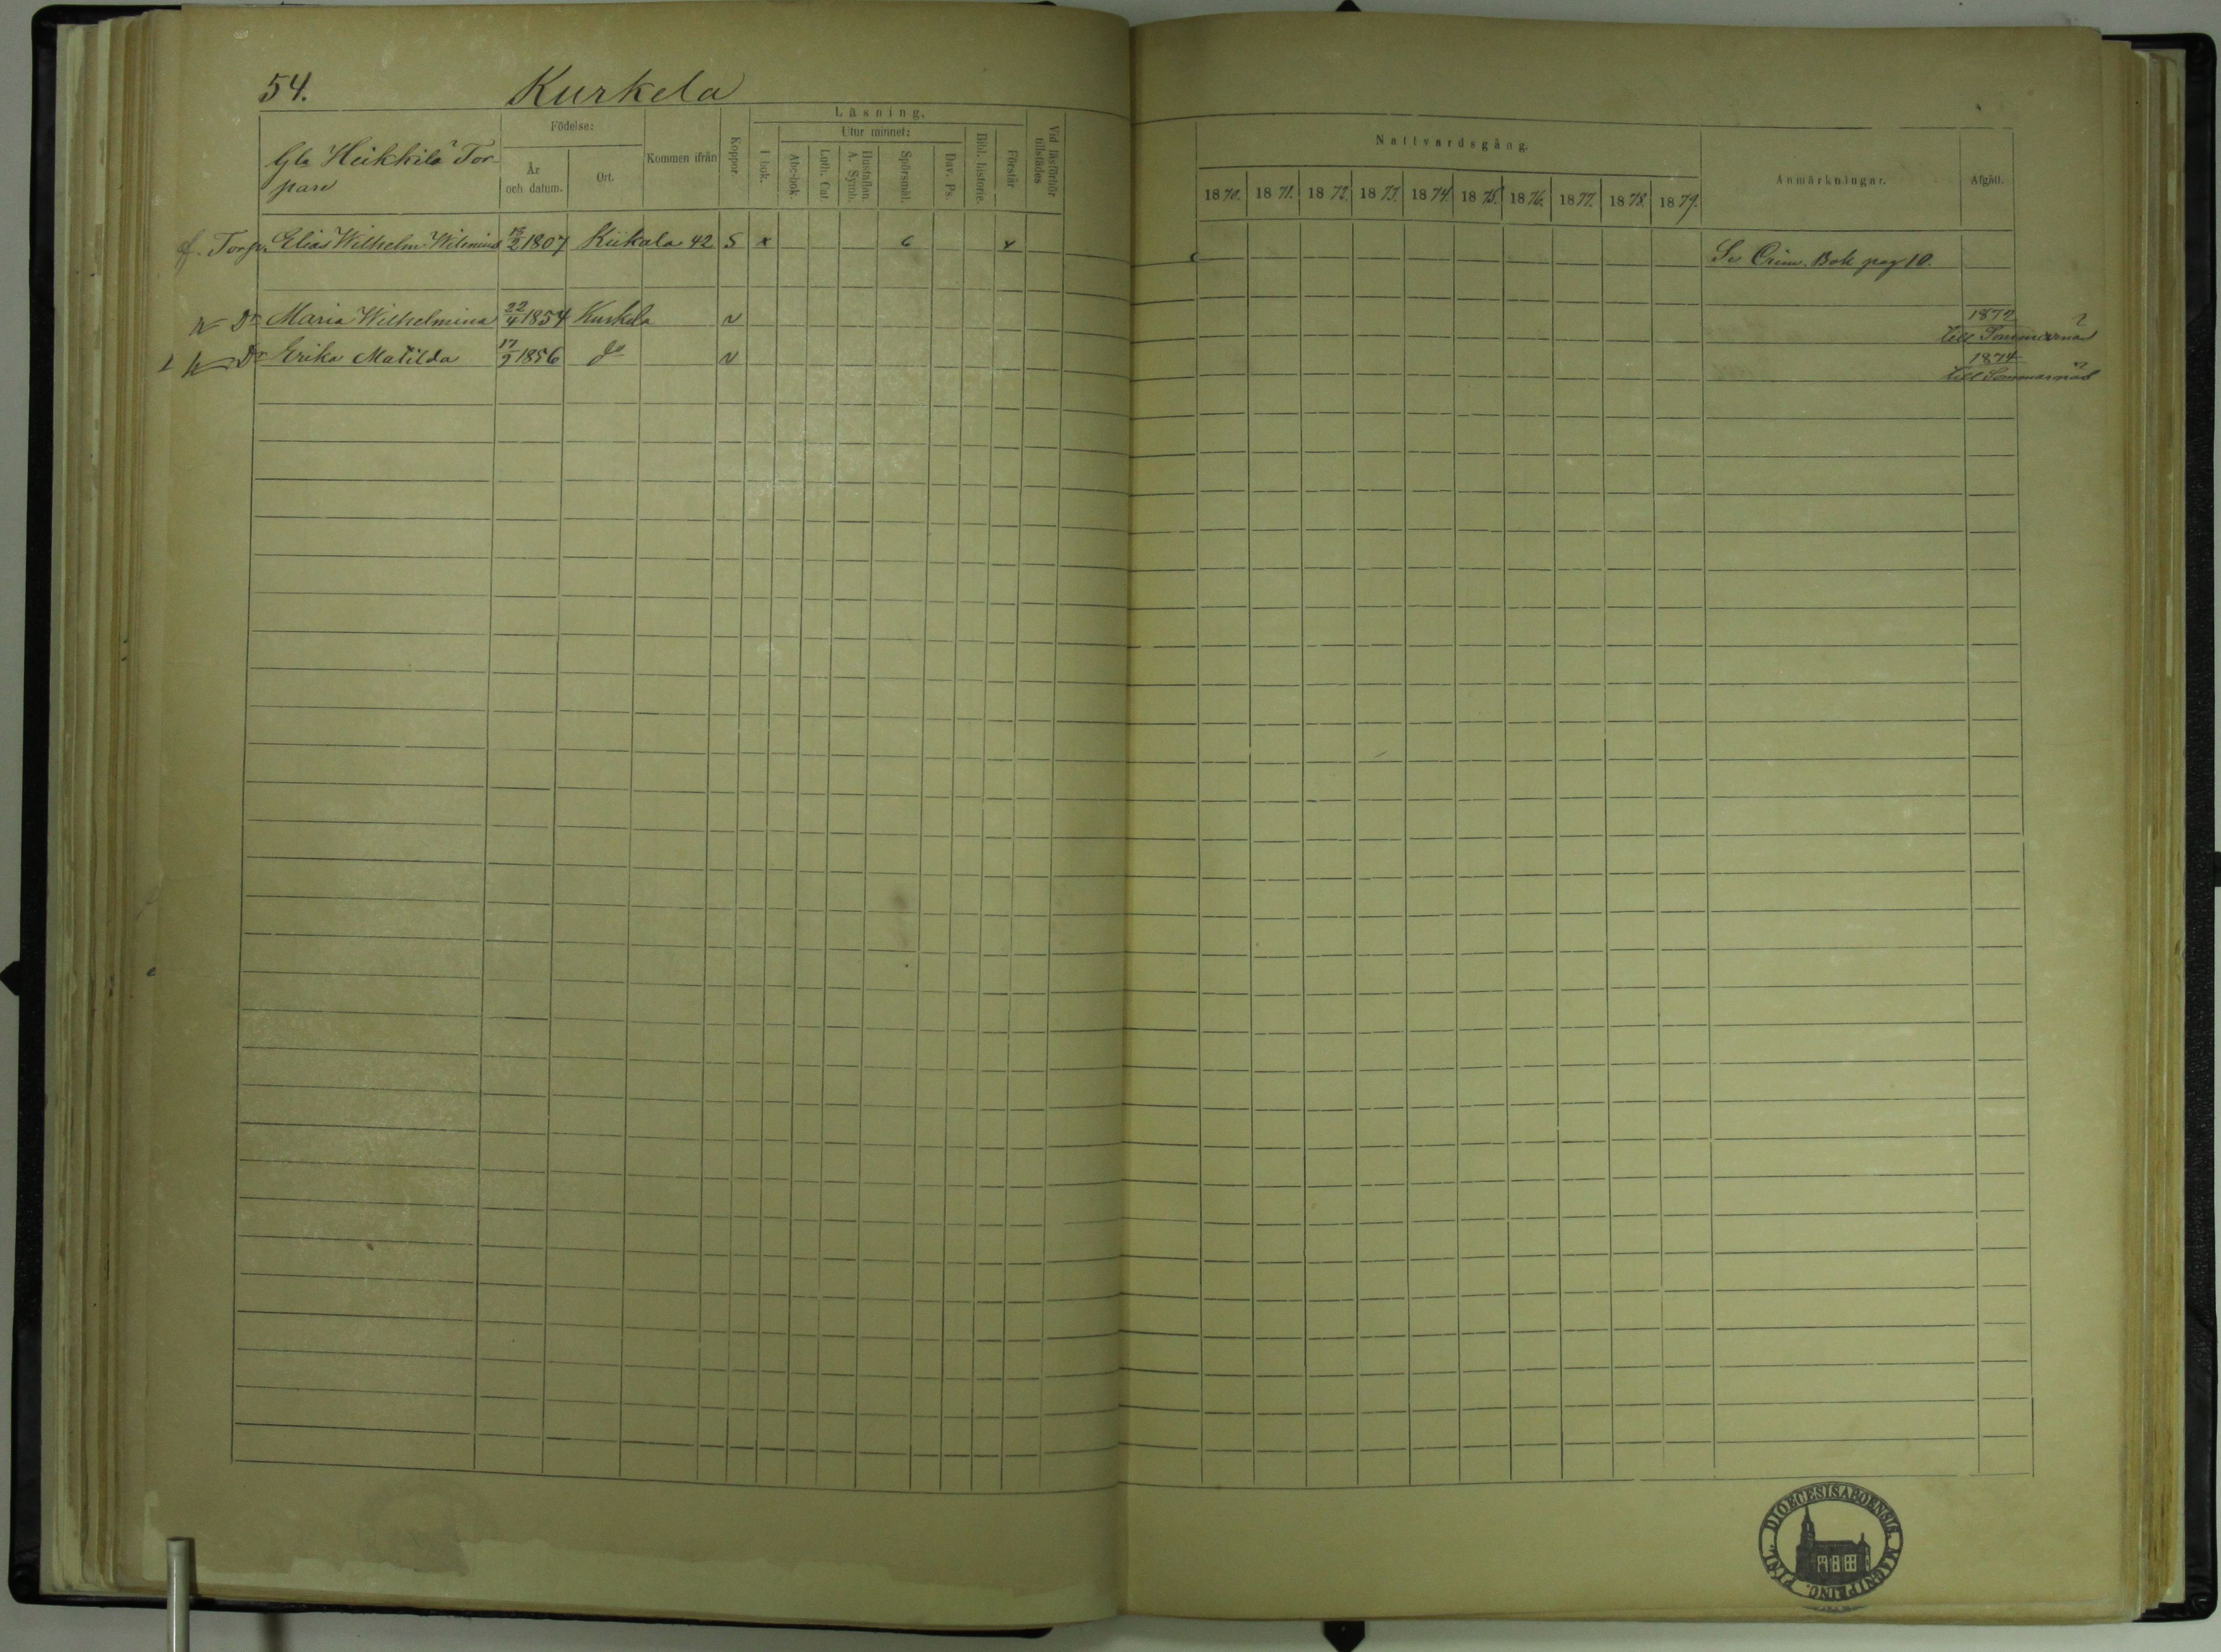 54. Kurkela
Läsning.
Födelse:
Utur minnet:
Gla Heikkilä Tor-
parn
År och datum.
Ort.
Kommen ifrån
Koppor.
I bok.
Abc-bok.
Luth. Cat.
Hustaflan. A. Symb.
Spörsmål.
Dav. Ps.
Bibl. historie.
Förstår
Vid läsförhör tillstädes
Nattvardsgång.
1870. 1871. 1872. 1873. 1874. 1875. 1876. 1877. 1878. 1879.
Anmärkningar.
Afgått.
f. Torp. Elias Wilhelm 15/2 1807 Kiikala 42 S x 6 x Se Crim. Bok pag 10.
Dr Maria Wilhelmina 22/4 1854 Kurkela v 1872
till
Dr Erika Matilda 17/9 1856 do v 1874
till
DIOECESIS ABOENSIS. MAGNI PRINC. FINL.